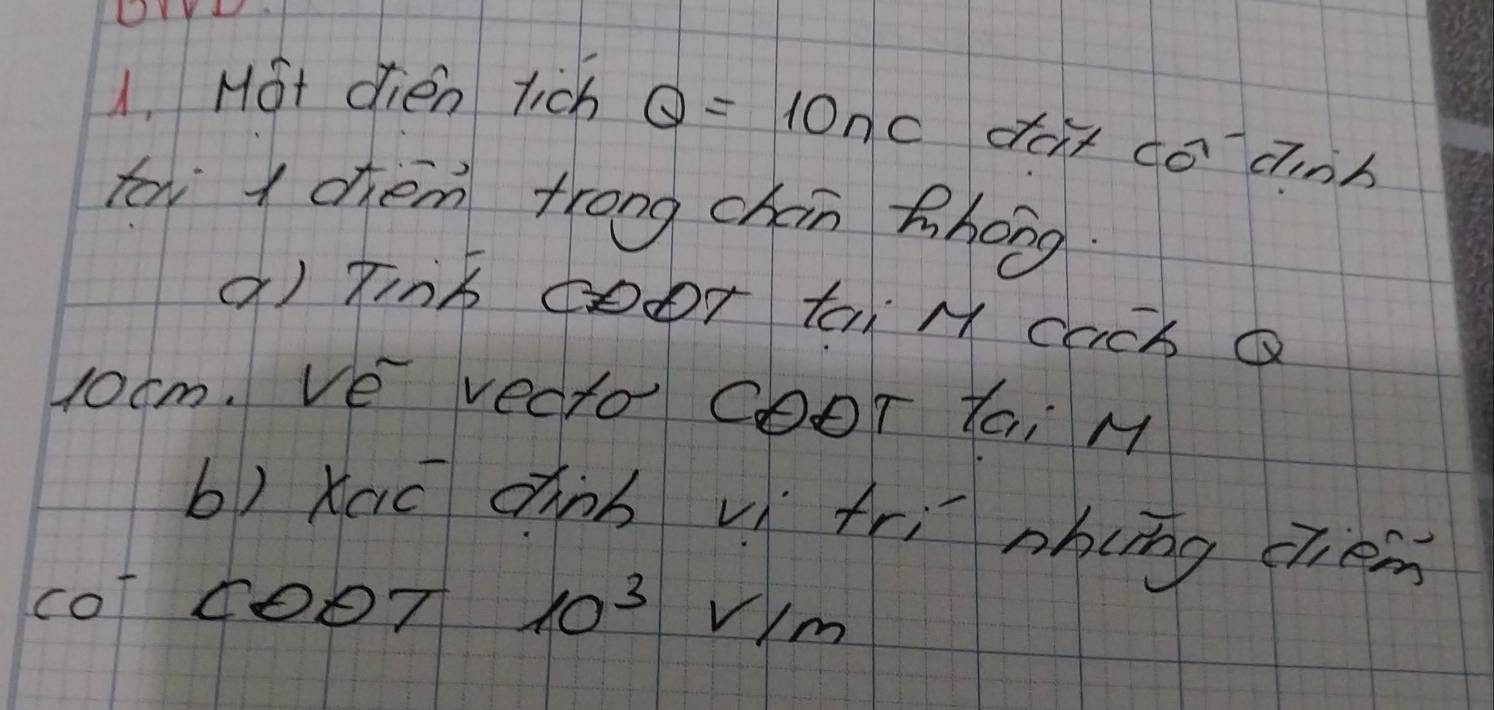 1. Một điện tích Q = 10nC đặt cố định
tại 1 điểm trong chân không.
a) Tính CĐĐT tại M cách Q
10cm. Vẽ vecto CĐĐT tại M
b) Xác định vị trí những điểm
có CĐĐT 10³ V/m